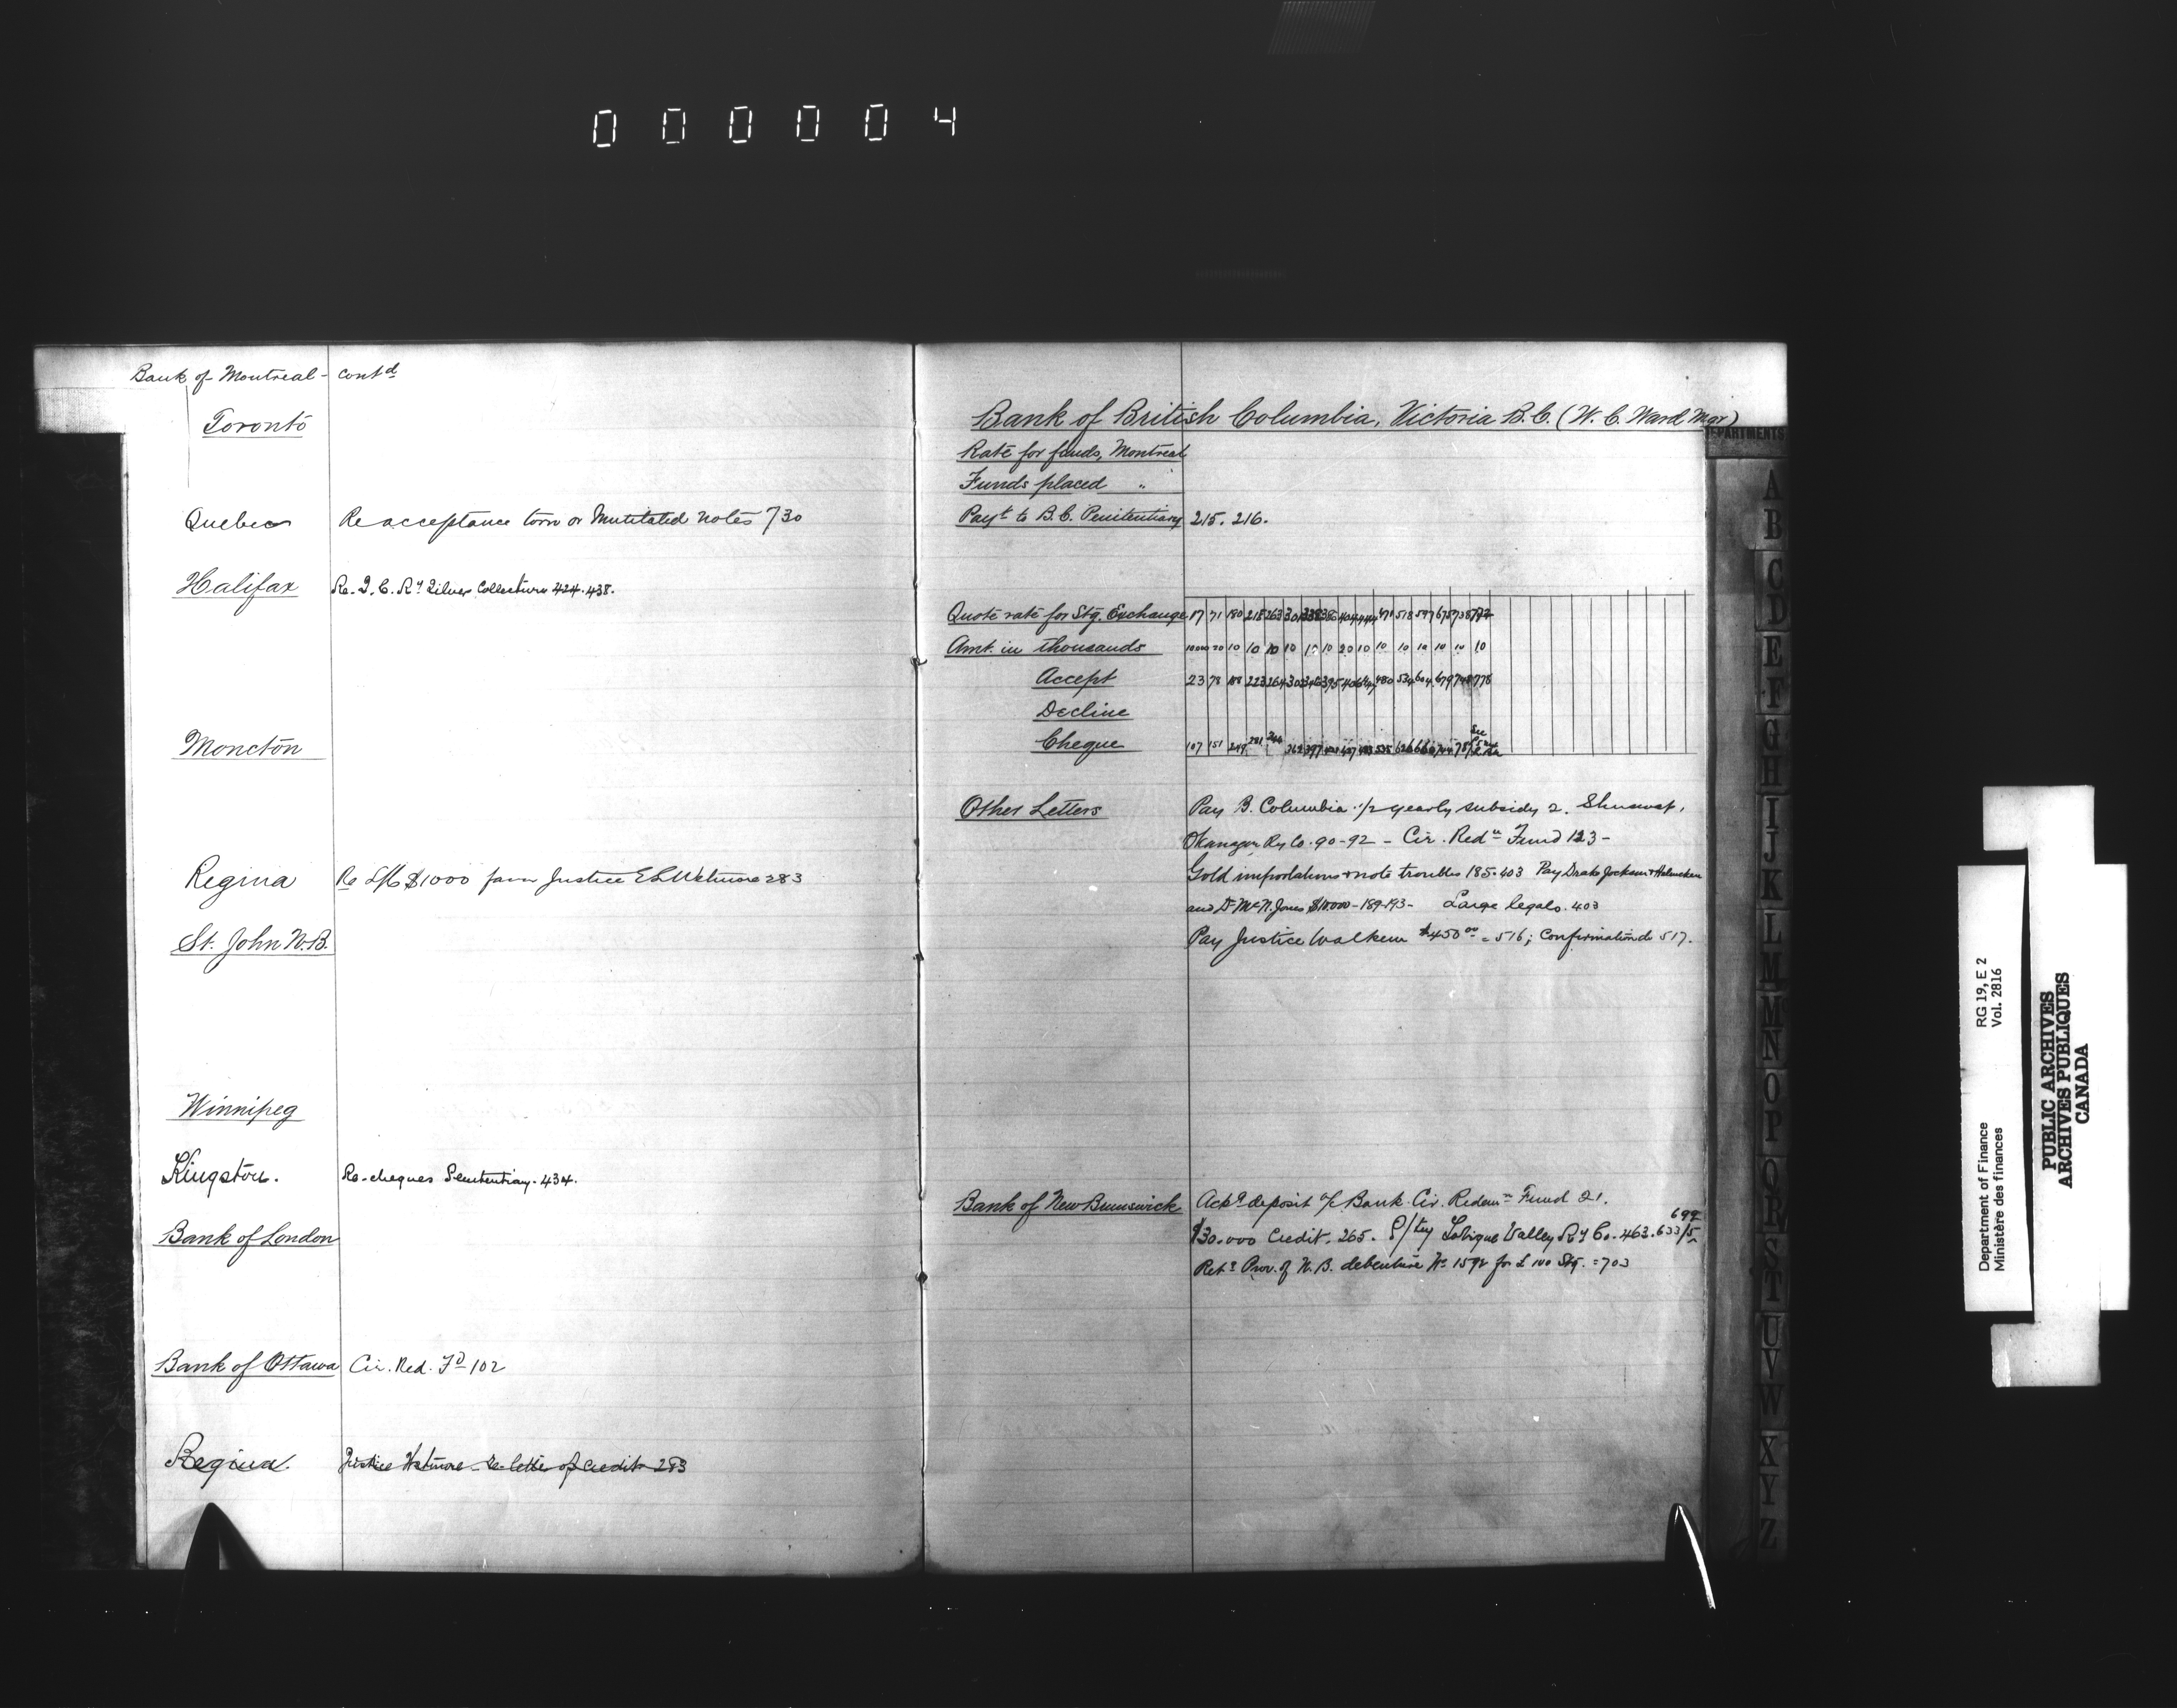 000004
Bank of Montreal - contd
Toronto
Quebec Re acceptance torn or Mutilated notes 730
Halifax Re. I. C. Ry Silver Collections 424. 438.
Moncton
Regina Re L/C $1000 favr Justice E L Wetmore 283
St. John N.B.
Winnipeg
Kingston. Re-cheques Penitentiary. 434.
Bank of London
Bank of Ottawa Cir. Red. Fd 102
Regina. Justice Wetmore - re letter of credit 283
Bank of British Columbia, Victoria B.C. (W. C. Ward Mgr)
Rate for funds, Montreal
Funds placed "
Payt to B.C. Penitentiary 215. 216.
Quote rate for Stg. Exchange 17 71 180 215 263 301 471 518 597 675 738 772
Amt. in thousands 10000 20 10 10 10 10 10 10 20 10 10 10 10 10 10 10
Accept 23 78 188 223 264 302 395 406 480 534 604 679 748 778
Decline
Cheque 107 151 249 281 362 397 535 626 660 744 787
Other Letters Pay B. Columbia 1/2 yearly subsidy 2. Shuswap,
Okanagan Ry Co. 90-92 - Cir. Redn Fund 123 -
Gold importations & note troubles 185. 403 Pay Drake Jackson & Helmcken
and Dr McN. Jones $10.000 - 189-193 - Large legals. 403
Pay Justice Walkem $450 00 = 516; Confirmation do 517.
Bank of New Brunswick Ackg deposit a/c Bank Cir. Redemn Fund 21.
699
$30.000 Credit. 265. Tobique Valley Ry Co. 463. 633/5
Retg Prov. of N.B. debenture No 1592 for £100 Stg. = 703
DEPARTMENTS
A
B
C
D
E
F
G
H
I
J
K
L
M
Mc
N
O
P
Q
R
S
T
U
V
W
X
Y
Z
Department of Finance RG 19, E 2
Ministère des finances Vol. 2816
PUBLIC ARCHIVES
ARCHIVES PUBLIQUES
CANADA